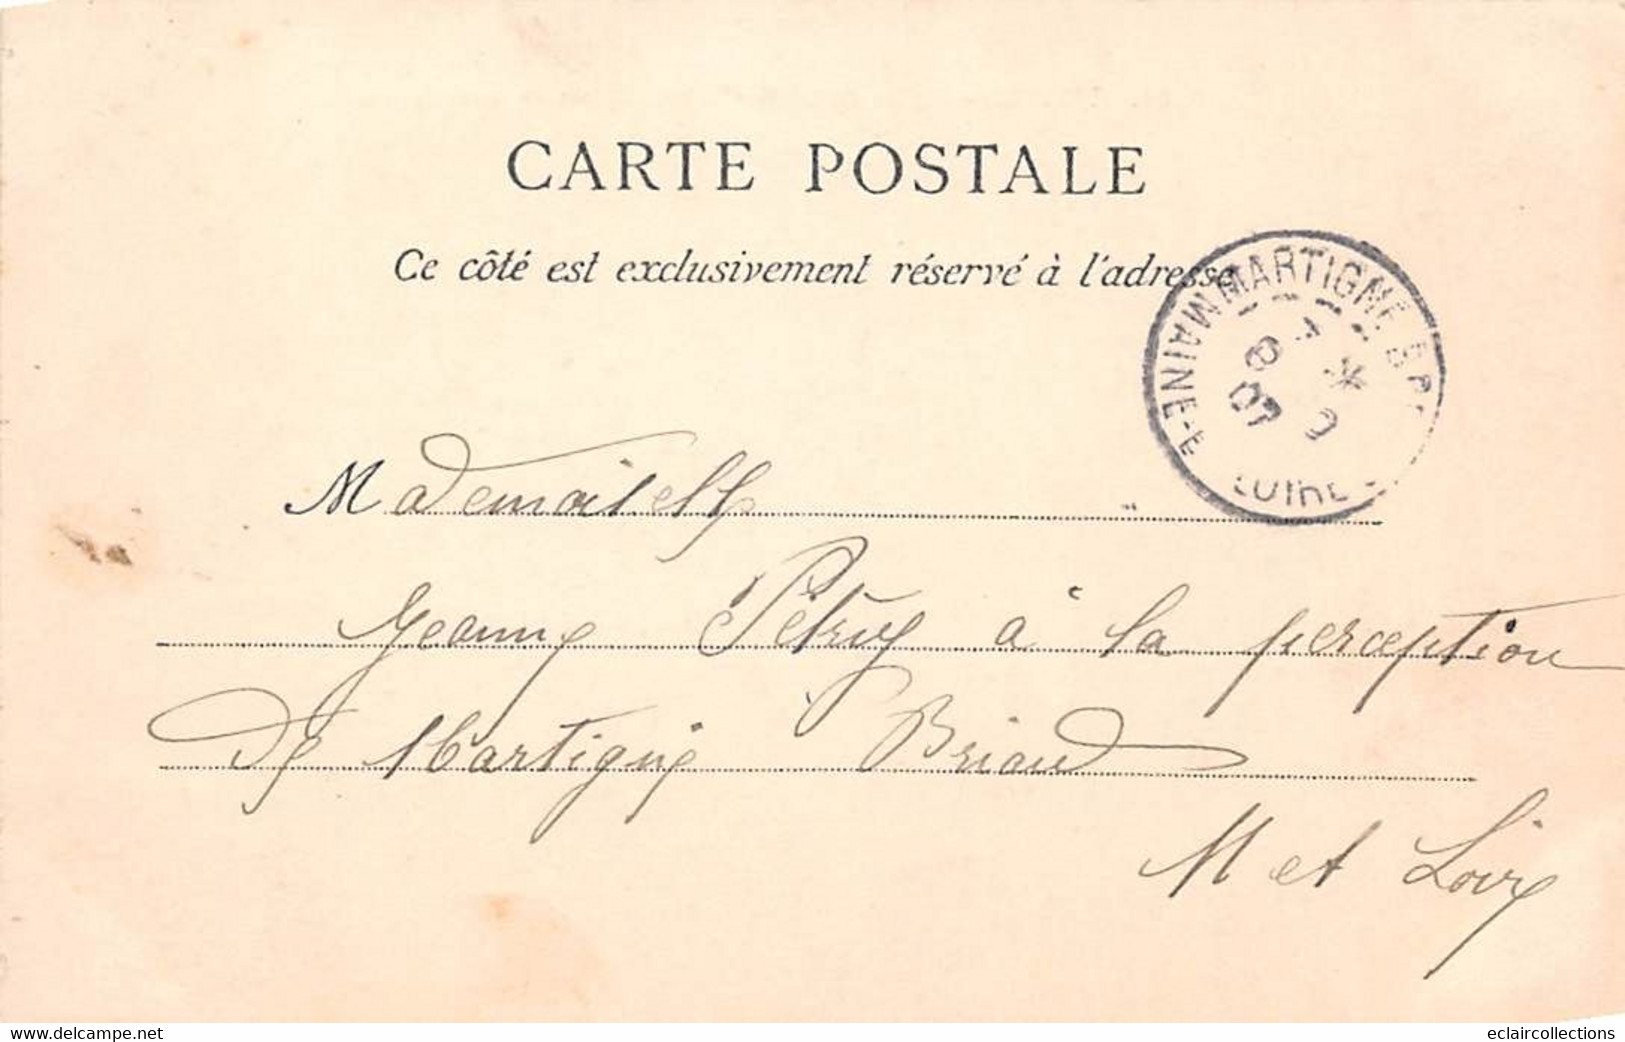 CARTE POSTALE
Ce côté est exclusivement réservé à l'adresse
MARTIGNÉ-BR
MAINE-&-LOIRE
8
07
Mademoiselle
Jeanne Pétruy à la perception
de Martigné Briand
M et Loire
www.delcampe.net
eclaircollections